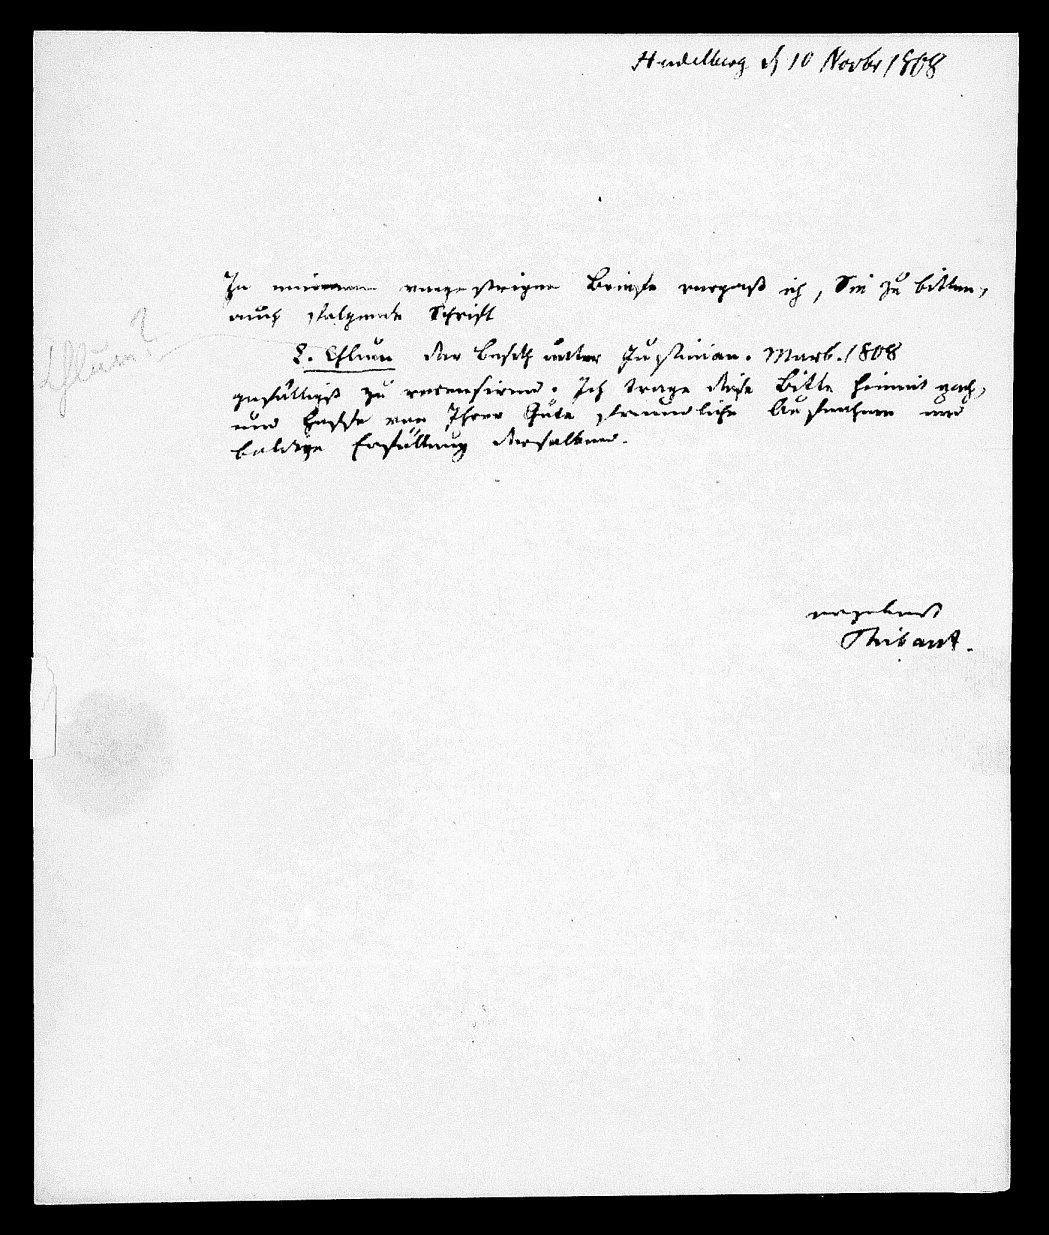 Heidelberg d 10 Novbr 1808
In meinem vorgestrigen Briefe vergaß ich, Sie zu bitten,
auch folgende Schrift
der Besitz unter Justinian. Marb. 1808
gefälligst zu recensiren. Ich trage diese Bitte hiemit nach,
und hoffe von Ihrer Güte freundliche Aufnahme und
baldige Erfüllung derselben.
ergebenst
Thibaut.